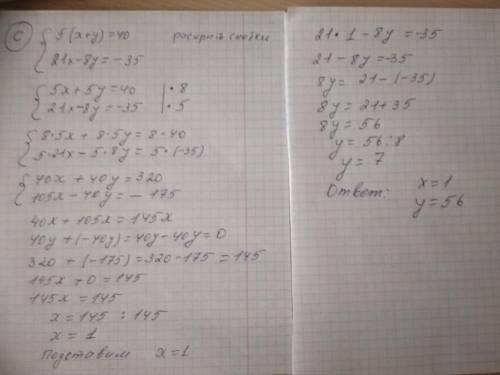 С) { 5(x+y)=40 раскрыть скобки
21x-8y=-35
{ 5x+5y=40 | •8
21x-8y=-35 | •5
{ 8•5x + 8•5y = 8•40
5•21x-5•8y = 5•(-35)
{ 40x + 40y = 320
105x - 40y = - 175
40x + 105x = 145x
40y + (-40y) = 40y - 40y = 0
320 + (-175) = 320 - 175 = 145
145x + 0 = 145
145x = 145
x = 145 : 145
x = 1
Подставим x=1
21•1 - 8y = -35
21 - 8y = -35
8y = 21 - (-35)
8y = 21 + 35
8y = 56
y = 56 : 8
y = 7
Ответ: x=1
y=56